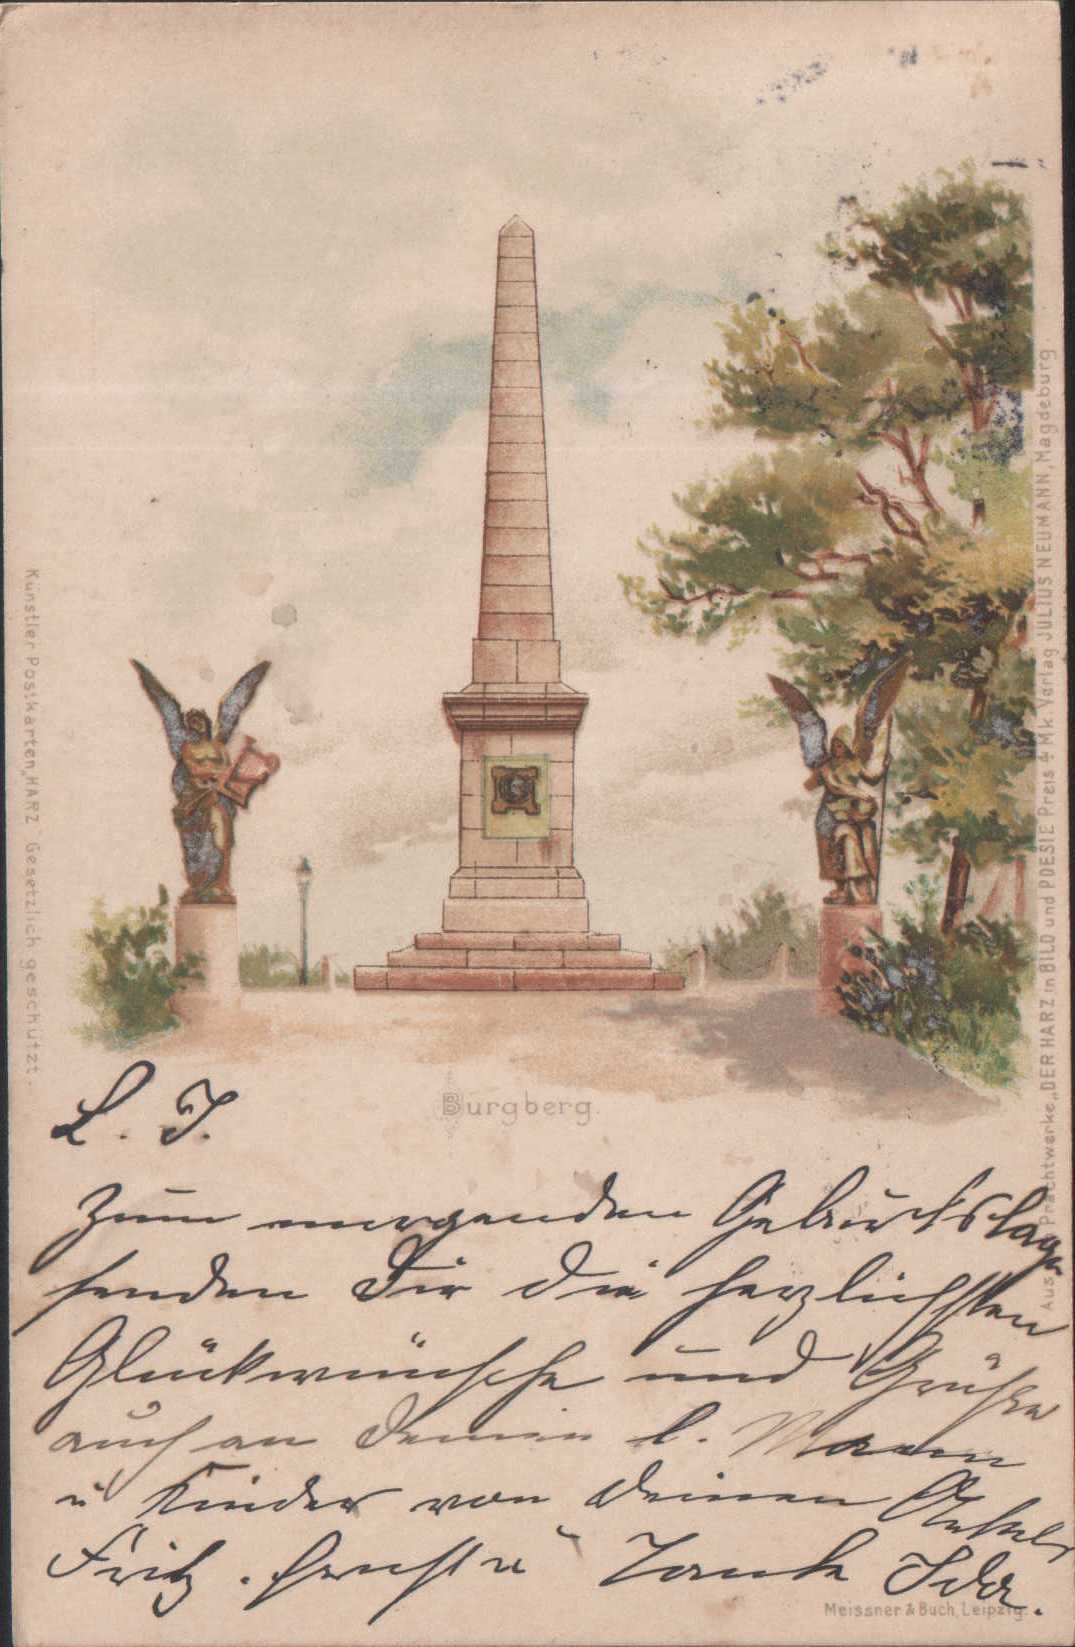 Burgberg.
Künstler Postkarten „HARZ" Gesetzlich geschützt.
Aus Prachtwerke „DER HARZ in BILD und POESIE Preis 4 Mk. Verlag JULIUS NEUMANN, Magdeburg.
L. I.
Zum morgenden Geburtstage
senden Dir die herzlichsten
Glückwünsche und Grüße
auch an Deinen l. Mann
u Kinder von deinen
Fritz. Ernst u Tante Ida.
Meissner & Buch, Leipzig.